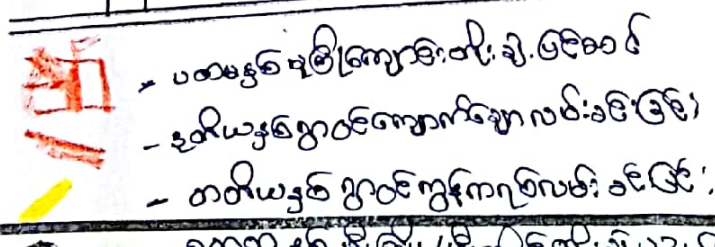 - ပထမနှစ် မူကြိုကျောင်းတိုးချဲ့ပြင်ဆင်
- ဒုတိယနှစ် ရွာဝင်ကျောက်ချောလမ်းခင်းခြင်း
- တတိယနှစ် ရွာဝင်ကွန်ကရစ်လမ်းခင်းခြင်း